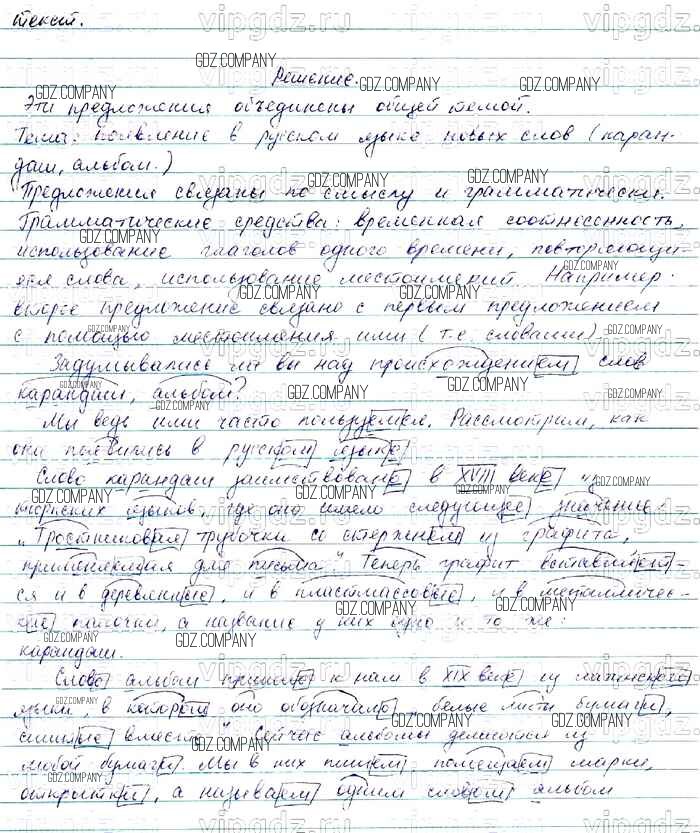 текст.
Решение.
Эти предложения объединены общей темой.
Тема: появление в русском языке новых слов (каран-
даш, альбом.)
Предложения связаны по смыслу и грамматически.
Грамматические средства: временная соотнесенность,
использование глаголов одного времени, повторяющи-
еся слова, использование местоимений. Например:
второе предложение связано с первым предложением
с помощью местоимения ими (т.е. словами).
Задумывались ли вы над происхождением слов
карандаш, альбом?
Мы ведь ими часто пользуемся. Рассмотрим, как
они появились в русском языке.
Слово карандаш заимствовано в XVIII веке из
тюркских языков, где оно имело следующее значение:
"Тростниковая трубочка со стержнем из графита,
применяемая для письма". Теперь графит вставляет-
ся и в деревянные, и в пластмассовые, и в металличес-
кие палочки, а название у них одно и то же:
карандаш.
Слово альбом пришло к нам в XIX веке из латинского
языка, в котором оно обозначало "белые листы бумаги,
сшитые вместе". Сейчас альбомы делаются из
любой бумаги. Мы в них пишем, помещаем марки,
открытки, а называем одним словом альбом
vipgdz.ru
GDZ.COMPANY